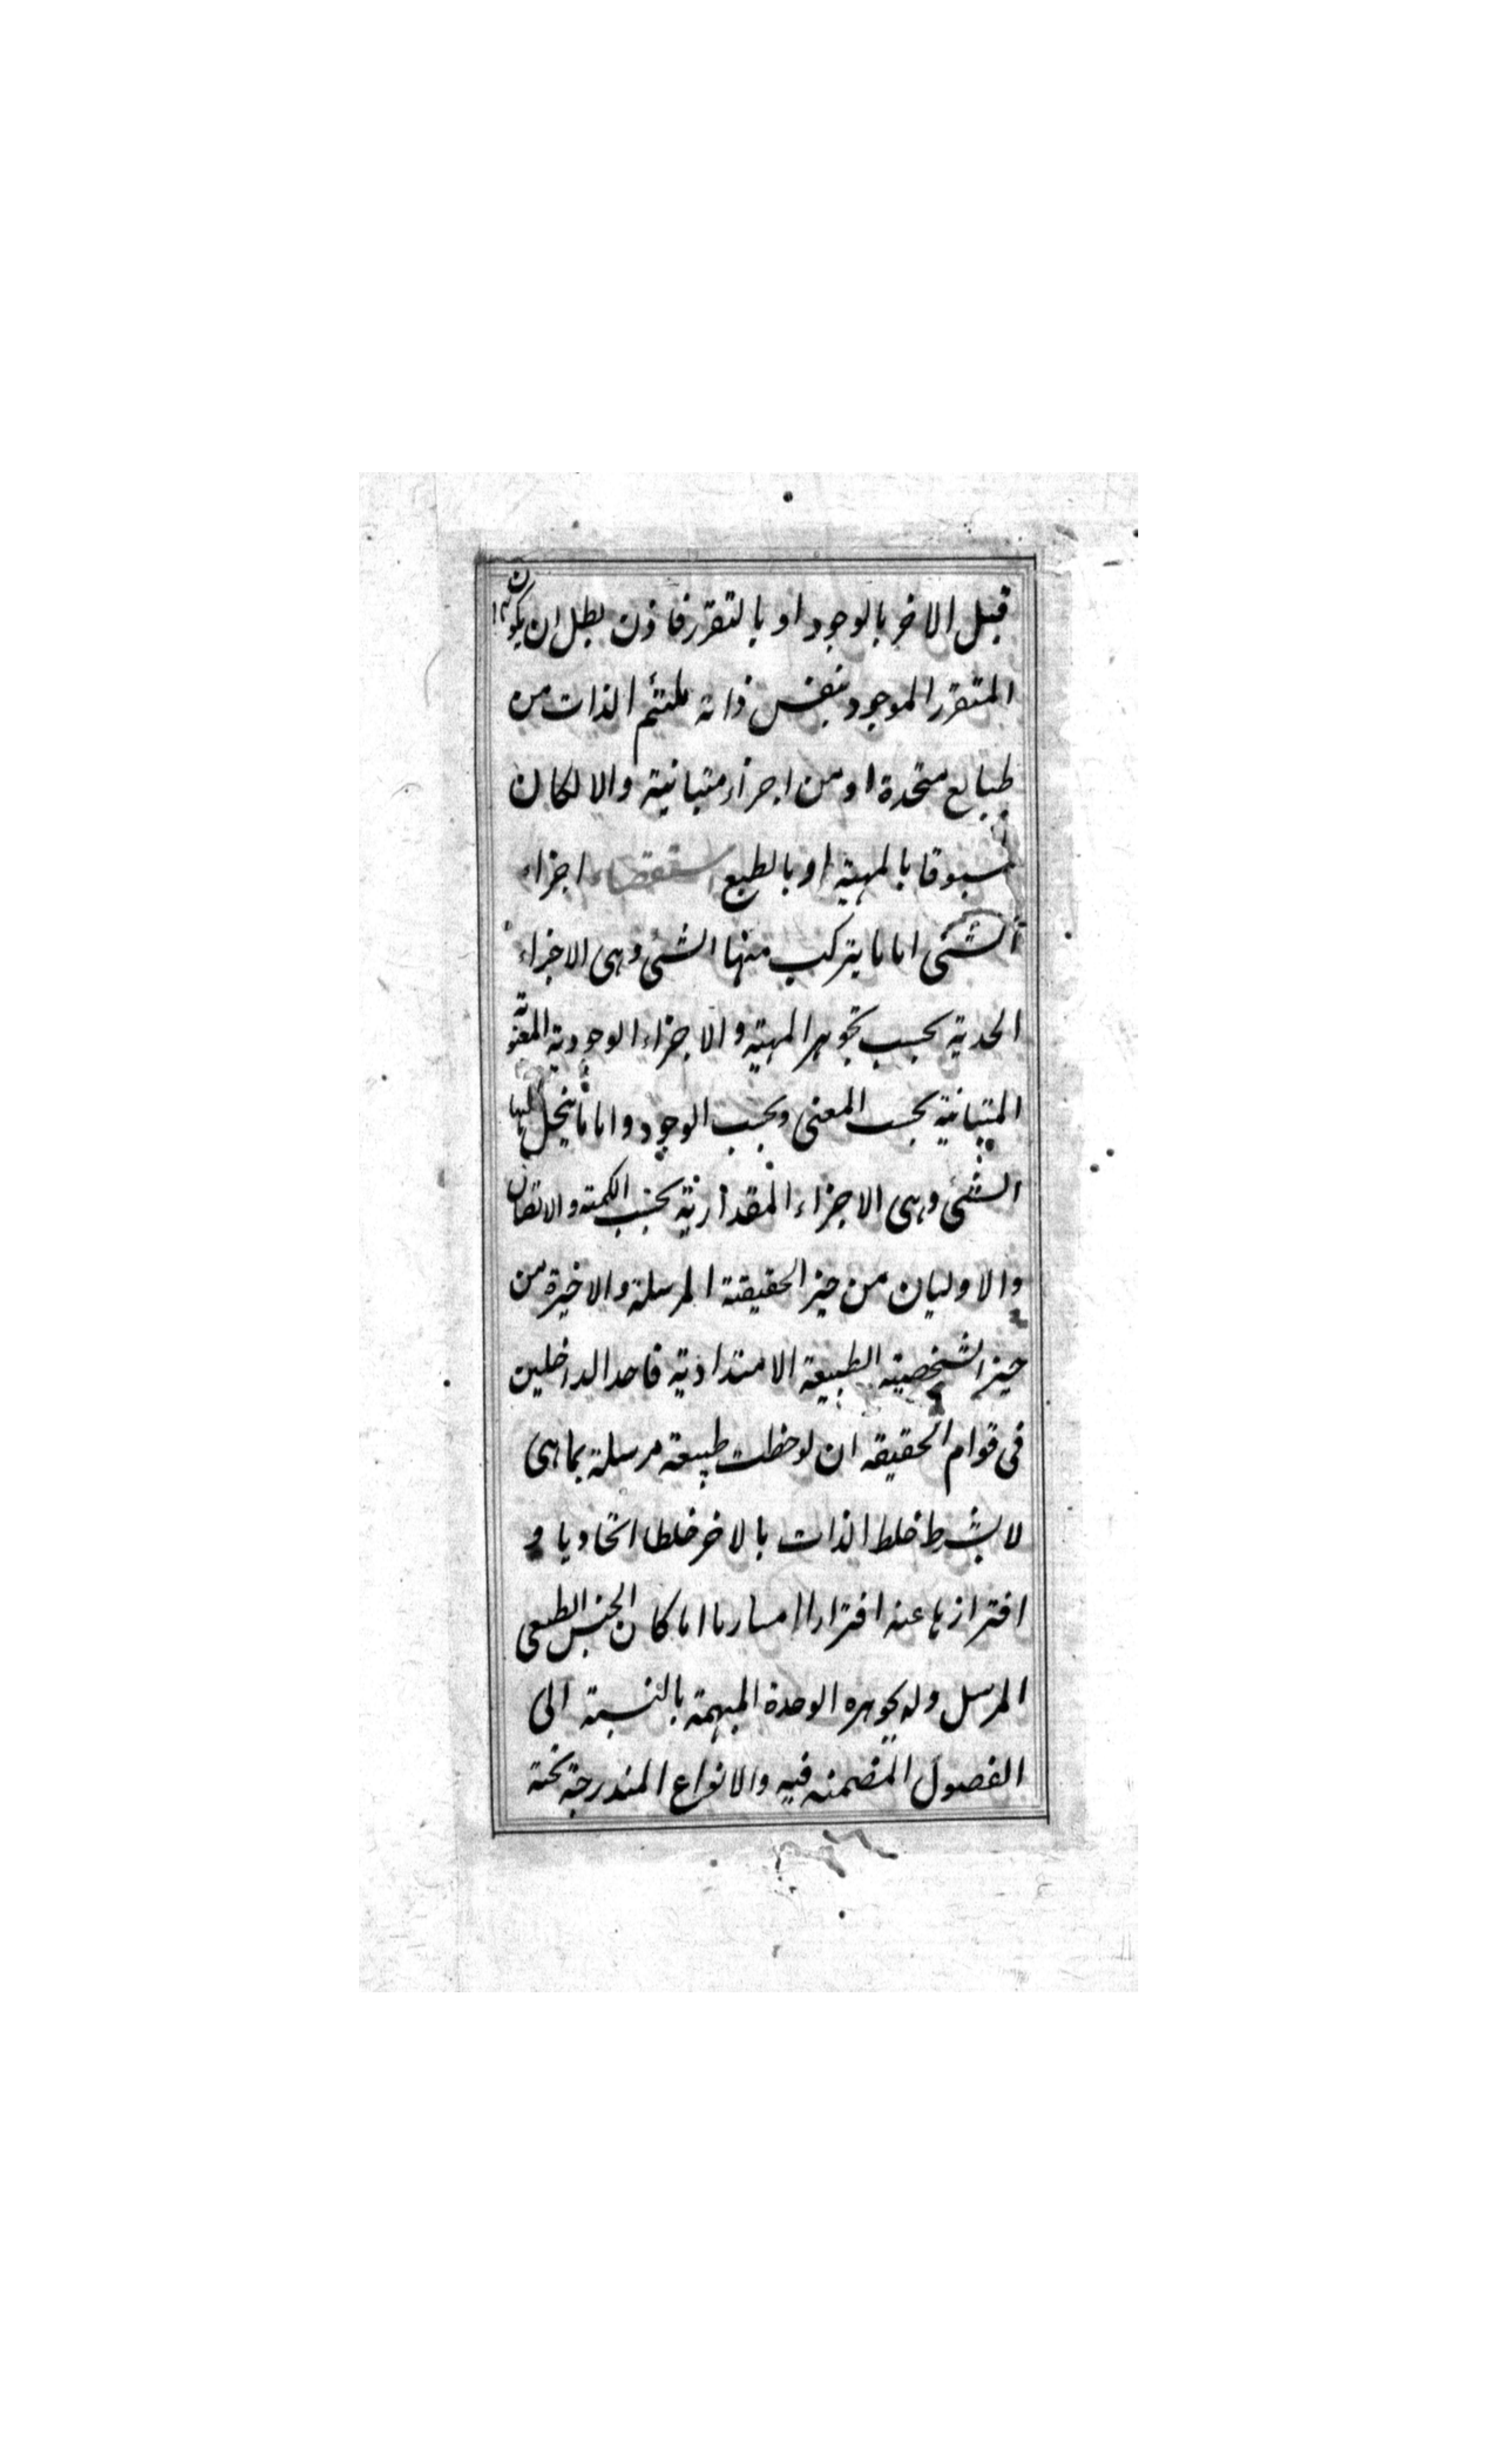 قبل الاخر بالوجود او بالتقرر فاذن بطل ان يكون
المتقرر الموجود بنفس ذاته ملتئم الذات من
طبايع متحدة او من اجزاء متباينة والا لكان
مسبوقا بالمهية او بالطبع استقصاء اجزاء
الشئ اما ما يتركب منها الشئ وهى الاجزاء
الحدية بحسب تجوهر المهية والاجزاء الوجودية المعنوية
المتباينة بحسب المعنى وبحسب الوجود واما ما ينحل اليها
الشئ وهى الاجزاء المقدارية بحسب الكمية والاتصال
والاوليان من حيز الحقيقة المرسلة والاخيرة من
حيز الشخصية الطبيعة الامتدادية فاحد الداخلين
فى قوام الحقيقه ان لوحظت طبيعة مرسلة بما هى
لا بشرط خلط الذات بالاخر خلطا اتحاديا و
افترازها عنه افترازا ما كان الجنس الطبعى
المرسل وله بجوهره الوحدة المبهمة بالنسبة الى
الفصول المضمنه فيه والانواع المندرجة تحته